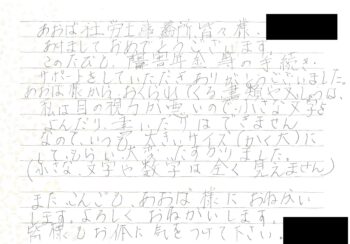 あおば社労士事務所、皆々様。
あけましておめでとうございます。
このたびは、障害年金、身の手続き、
サポートをしていただきありがとうございました。
あおば様から、おくられてくる書類やメールは、
私は目の視力が悪いので、小さな文字は
よんだり、書いたりはできません
なので、いつも大きいサイズ(かく大)に
してもらい、大変、たすかりました。
(小さな、文字や数字は全く見えません)
またこんごとも、あおば様におねがい
します。よろしくおねがいします。
皆様もお体に気をつけて下さい。